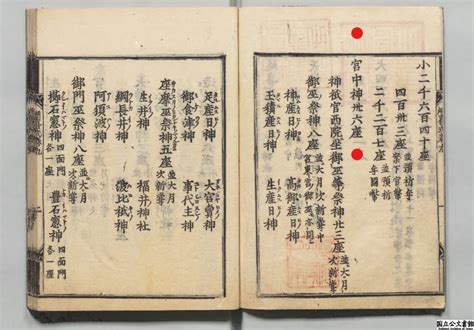 小二千六百四十座
四百卅三座 並預祈年案下官幣
二千二百七座 並預祈年國幣
宮中神卅六座
神祇官西院坐御巫等祭神廿三座 並大月次新嘗
御巫祭神八座 並大月次新嘗中宮東宮御巫亦同
神産日神 高御産日神
玉積産日神 生産日神
足産日神 大宮賣神
御食津神 事代主神
座摩巫祭神五座 並大月次新嘗
生井神 福井神
綱長井神 波比祇神
阿須波神
御門巫祭神八座 並大月次新嘗
櫛石窓神 四面門各一座 豊石窓神 四面門各一座
国立公文書館